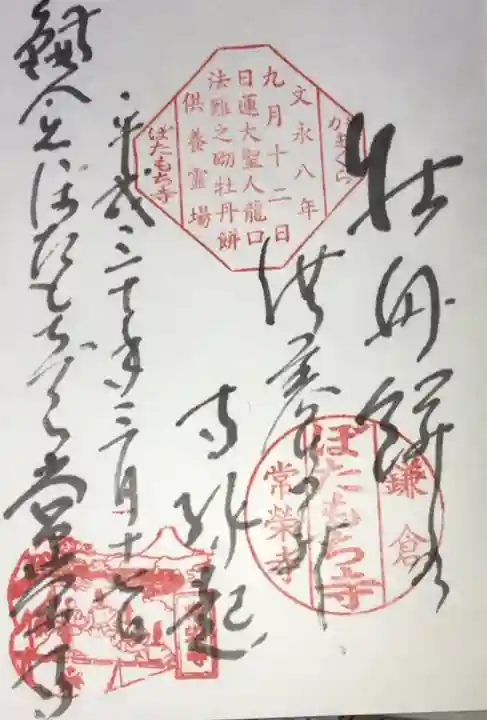 牡丹餅の
供養
寺縁起
平成三十年三月十七日
鎌倉ぼたもちでら常栄寺
かまくら
文永八年
九月十二日
日蓮大聖人龍口
法難之砌牡丹餅
供養霊場
ぼたもち寺
鎌倉
ぼたもち寺
常榮寺